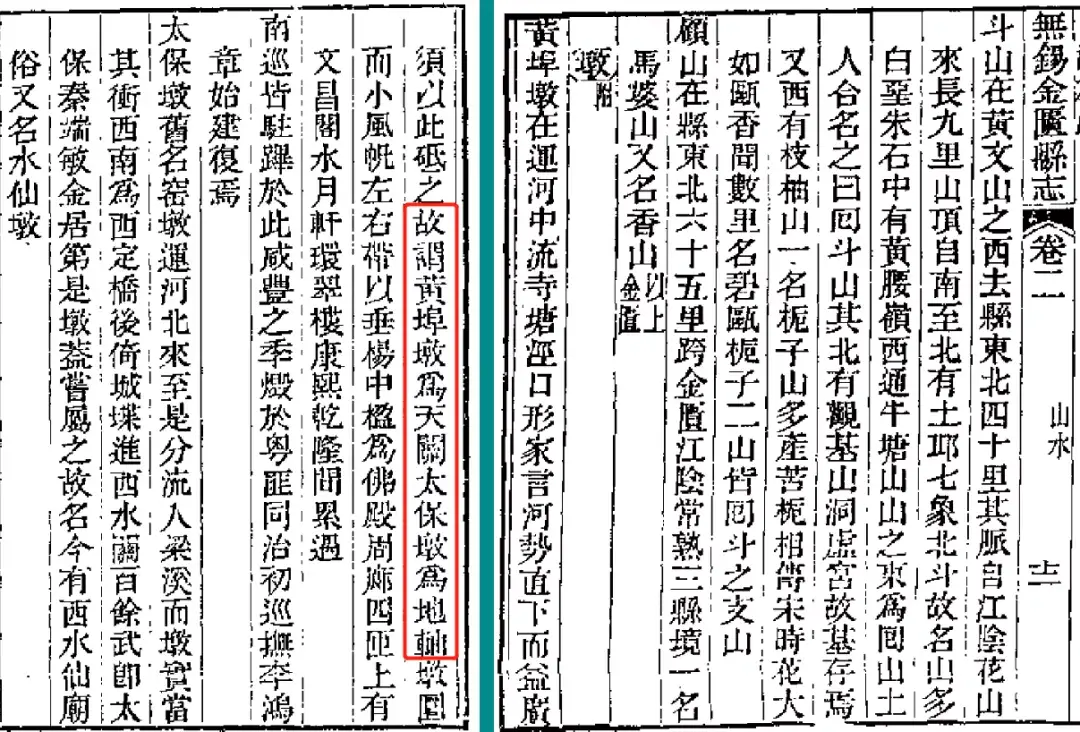 無錫金匱縣志 卷二 山水 十二
斗山在黃文山之西去縣東北四十里其脈自江陰花山
來長九里山頂自南至北有土邱七象北斗故名山多
白堊朱石中有黃腰嶺西通牛塘山山之東爲囘山土
人合名之曰囘斗山其北有觀基山洞虛宮故基存焉
又西有枝柚山一名梔子山多產苦梔相傳宋時花大
如甌香聞數里名碧甌梔子二山皆囘斗之支山
顧山在縣東北六十五里跨金匱江陰常熟三縣境一名
馬婆山又名香山以上金匱
墩附
黃埠墩在運河中流寺塘涇口形家言河勢直下而益廣
須以此砥之故謂黃埠墩爲天關太保墩爲地軸墩圓
而小風帆左右帶以垂楊中楹爲佛殿周廊四匝上有
文昌閣水月軒環翠樓康熙乾隆間累過
南巡皆駐蹕於此咸豐之季燬於粤匪同治初巡撫李鴻
章始建復焉
太保墩舊名窑墩運河北來至是分流入梁溪而墩實當
其衝西南爲西定橋後倚城堞進西水關百餘武卽太
保秦端敏金居第是墩葢嘗屬之故名今有西水仙廟
俗又名水仙墩